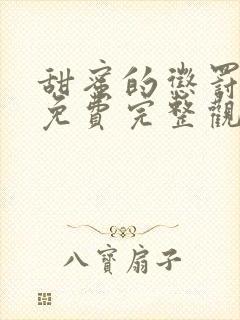 甜蜜的懲罰
免費完整觀
八寶扇子